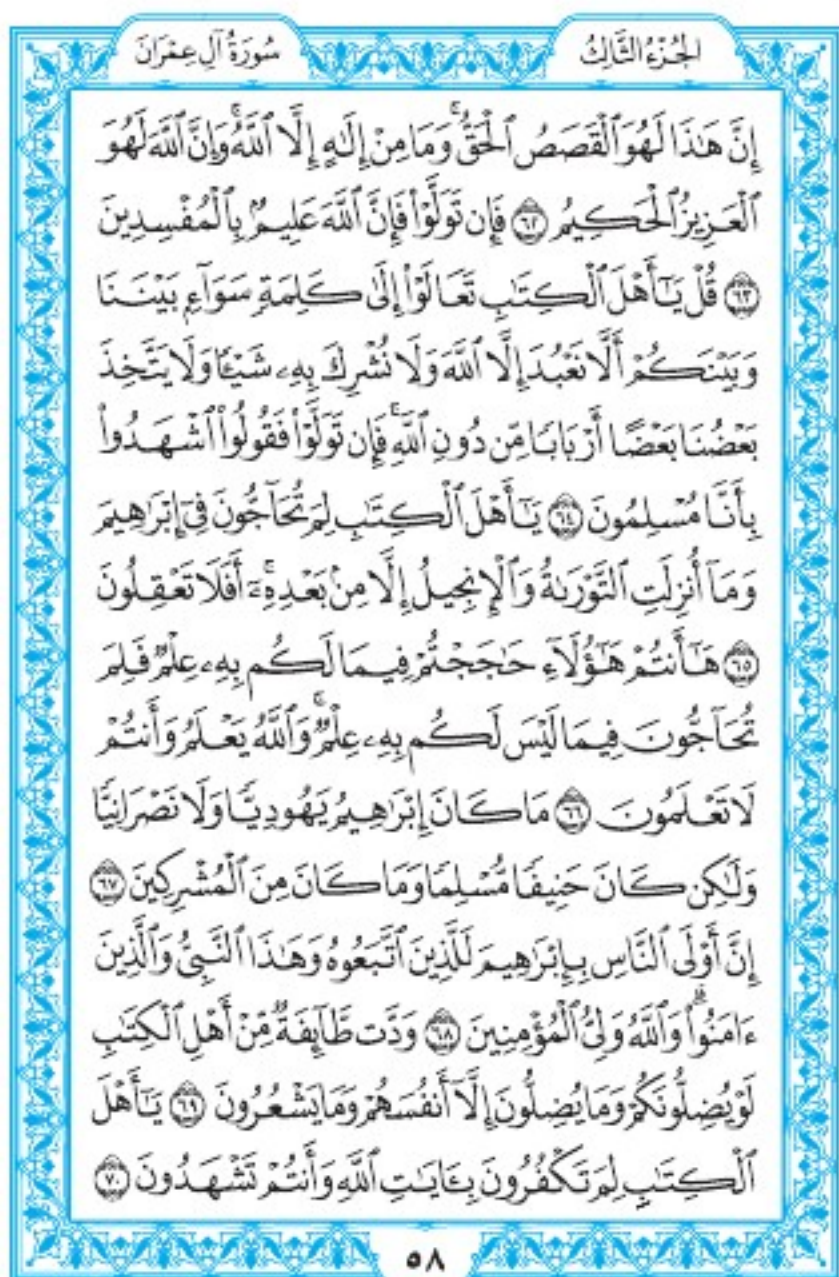 الجُزْءُ الثَّالِثُ
سُورَةُ آلِ عِمْرَانَ
إِنَّ هَٰذَا لَهُوَ ٱلْقَصَصُ ٱلْحَقُّۚ وَمَا مِنْ إِلَٰهٍ إِلَّا ٱللَّهُۚ وَإِنَّ ٱللَّهَ لَهُوَ
ٱلْعَزِيزُ ٱلْحَكِيمُ ۝٦٢ فَإِن تَوَلَّوْا۟ فَإِنَّ ٱللَّهَ عَلِيمٌۢ بِٱلْمُفْسِدِينَ
۝٦٣ قُلْ يَٰٓأَهْلَ ٱلْكِتَٰبِ تَعَالَوْا۟ إِلَىٰ كَلِمَةٍ سَوَآءٍۭ بَيْنَنَا
وَبَيْنَكُمْ أَلَّا نَعْبُدَ إِلَّا ٱللَّهَ وَلَا نُشْرِكَ بِهِۦ شَيْـًٔا وَلَا يَتَّخِذَ
بَعْضُنَا بَعْضًا أَرْبَابًا مِّن دُونِ ٱللَّهِۚ فَإِن تَوَلَّوْا۟ فَقُولُوا۟ ٱشْهَدُوا۟
بِأَنَّا مُسْلِمُونَ ۝٦٤ يَٰٓأَهْلَ ٱلْكِتَٰبِ لِمَ تُحَآجُّونَ فِىٓ إِبْرَٰهِيمَ
وَمَآ أُنزِلَتِ ٱلتَّوْرَىٰةُ وَٱلْإِنجِيلُ إِلَّا مِنۢ بَعْدِهِۦٓۚ أَفَلَا تَعْقِلُونَ
۝٦٥ هَٰٓأَنتُمْ هَٰٓؤُلَآءِ حَٰجَجْتُمْ فِيمَا لَكُم بِهِۦ عِلْمٌ فَلِمَ
تُحَآجُّونَ فِيمَا لَيْسَ لَكُم بِهِۦ عِلْمٌۚ وَٱللَّهُ يَعْلَمُ وَأَنتُمْ
لَا تَعْلَمُونَ ۝٦٦ مَا كَانَ إِبْرَٰهِيمُ يَهُودِيًّا وَلَا نَصْرَانِيًّا
وَلَٰكِن كَانَ حَنِيفًا مُّسْلِمًا وَمَا كَانَ مِنَ ٱلْمُشْرِكِينَ ۝٦٧
إِنَّ أَوْلَى ٱلنَّاسِ بِإِبْرَٰهِيمَ لَلَّذِينَ ٱتَّبَعُوهُ وَهَٰذَا ٱلنَّبِىُّ وَٱلَّذِينَ
ءَامَنُوا۟ۗ وَٱللَّهُ وَلِىُّ ٱلْمُؤْمِنِينَ ۝٦٨ وَدَّت طَّآئِفَةٌ مِّنْ أَهْلِ ٱلْكِتَٰبِ
لَوْ يُضِلُّونَكُمْ وَمَا يُضِلُّونَ إِلَّآ أَنفُسَهُمْ وَمَا يَشْعُرُونَ ۝٦٩ يَٰٓأَهْلَ
ٱلْكِتَٰبِ لِمَ تَكْفُرُونَ بِـَٔايَٰتِ ٱللَّهِ وَأَنتُمْ تَشْهَدُونَ ۝٧٠
٥٨